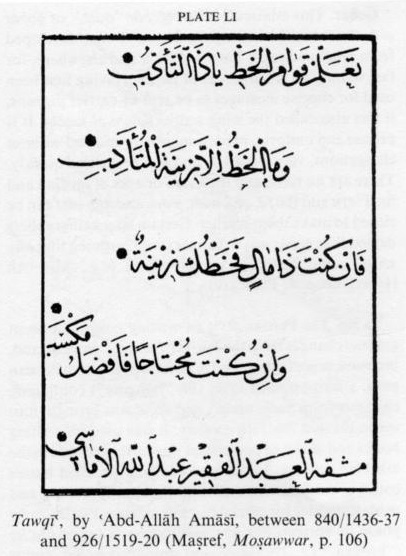 PLATE LI
تعلم قوام الخط یا ذا التأدب
وما الخط الا زینة المتأدب
فان کنت ذا مال فخطك زینة
وان کنت محتاجا فافضل مکسب
مشقه العبد الفقیر عبد الله الاماسی
Tawqīʿ, by ʿAbd-Allāh Amāsī, between 840/1436-37
and 926/1519-20 (Maṣref, Moṣawwar, p. 106)